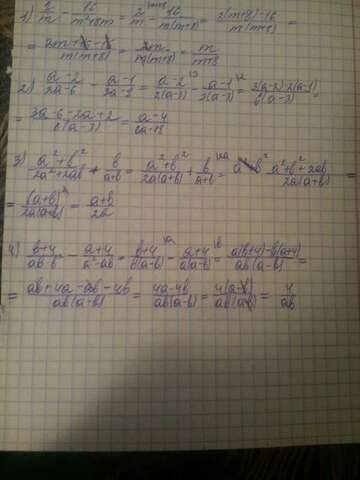 1) 2/m - 16/(m²+8m) = 2/m - 16/(m(m+8)) = (2(m+8)-16)/(m(m+8)) =
= (2m+16-16)/(m(m+8)) = 2m/(m(m+8)) = m/(m+8)
2) (a-2)/(2a-6) - (a-1)/(3a-9) = (a-2)/(2(a-3)) - (a-1)/(3(a-3)) = (3(a-2)-2(a-1))/(6(a-3)) =
= (3a-6-2a+2)/(6(a-3)) = (a-4)/(6a-18)
3) (a²+b²)/(2a²+2ab) + b/(a+b) = (a²+b²)/(2a(a+b)) + b/(a+b) = (a²+b²+2ab)/(2a(a+b)) =
= (a+b)²/(2a(a+b)) = (a+b)/2a
4) (b+4)/(ab-b²) - (a+4)/(a²-ab) = (b+4)/(b(a-b)) - (a+4)/(a(a-b)) = (a(b+4)-b(a+4))/(ab(a-b)) =
= (ab+4a-ab-4b)/(ab(a-b)) = (4a-4b)/(ab(a-b)) = 4(a-b)/(ab(a-b)) = 4/ab